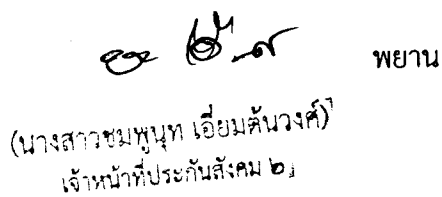 พยาน
(นางสาวชมพูนุท เอี่ยมตันวงศ์)
เจ้าหน้าที่ประกันสังคม ๒